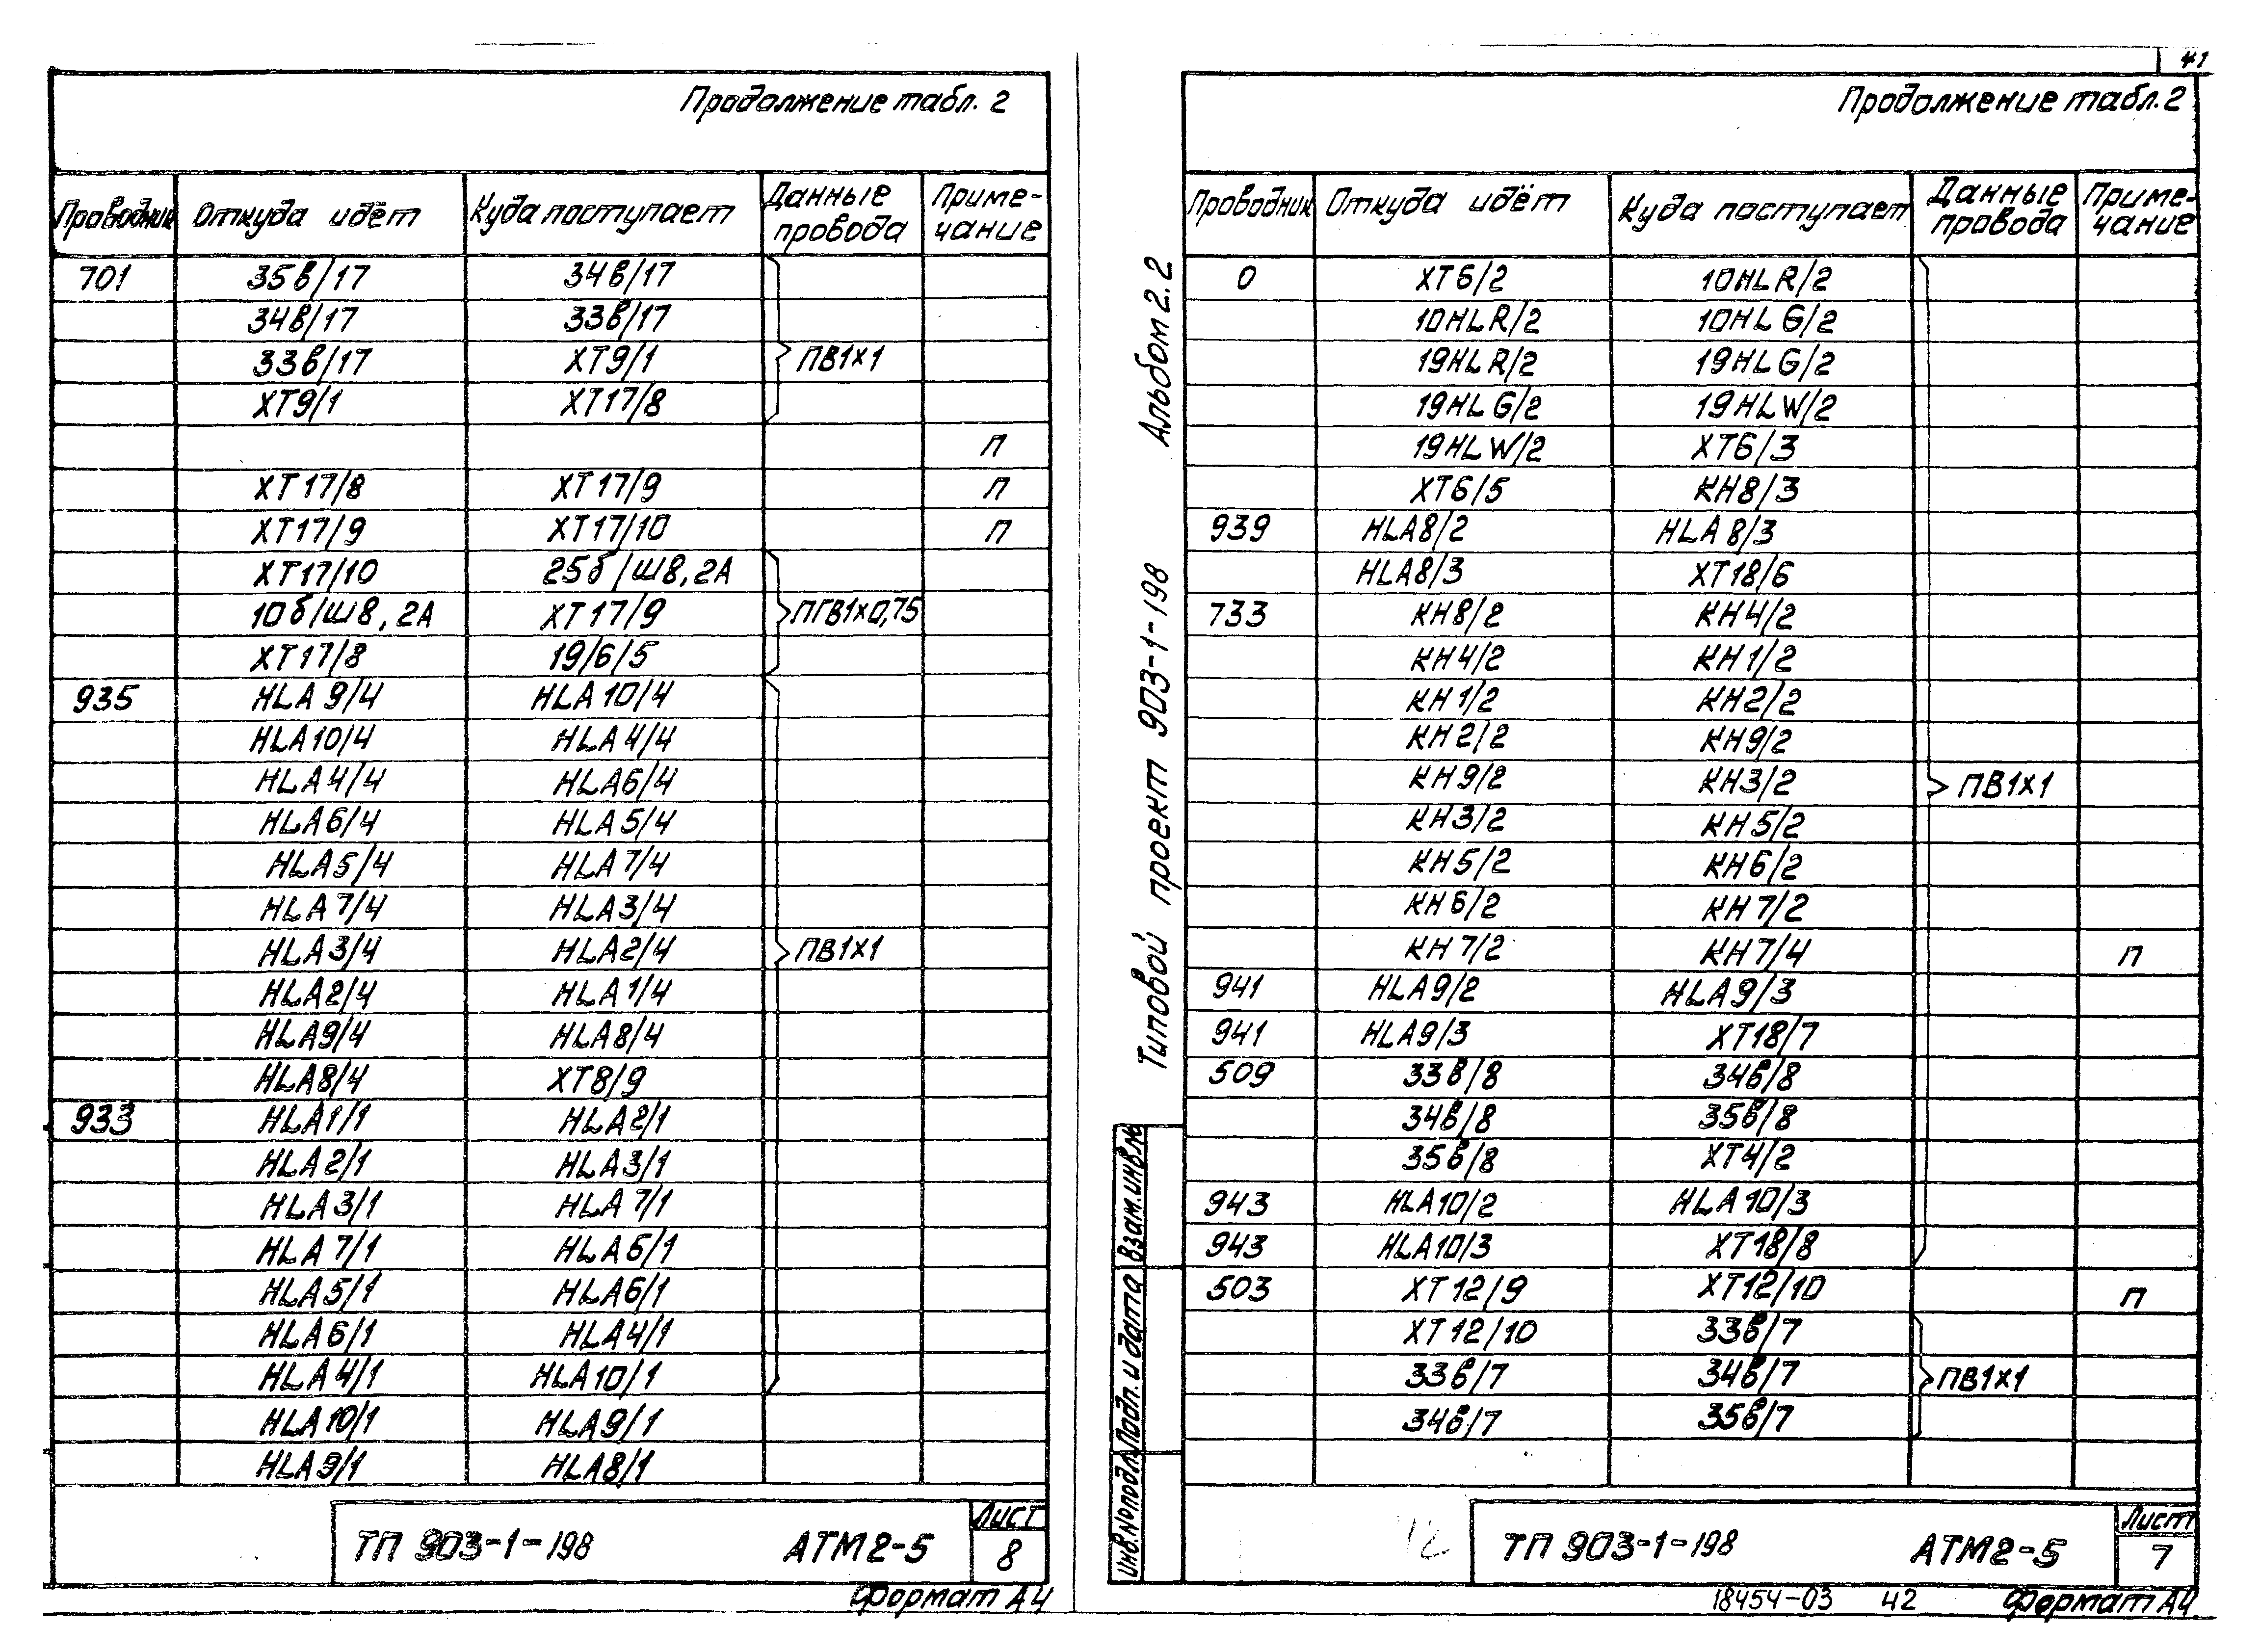 Продолжение табл. 2
Проводник Откуда идёт Куда поступает Данные провода Приме-чание
701 35в/17 34в/17
34в/17 33в/17
33в/17 ХТ9/1 ПВ1х1
ХТ9/1 ХТ17/8
п
ХТ17/8 ХТ17/9 п
ХТ17/9 ХТ17/10 п
ХТ17/10 25б/Ш8,2А
10б/Ш8,2А ХТ17/9 ПГВ1х0,75
ХТ17/8 19/6/5
935 HLA9/4 HLA10/4
HLA10/4 HLA4/4
HLA4/4 HLA6/4
HLA6/4 HLA5/4
HLA5/4 HLA7/4
HLA7/4 HLA3/4
HLA3/4 HLA2/4 ПВ1х1
HLA2/4 HLA1/4
HLA9/4 HLA8/4
HLA8/4 ХТ8/9
933 HLA1/1 HLA2/1
HLA2/1 HLA3/1
HLA3/1 HLA7/1
HLA7/1 HLA5/1
HLA5/1 HLA6/1
HLA6/1 HLA4/1
HLA4/1 HLA10/1
HLA10/1 HLA9/1
HLA9/1 HLA8/1
ТП 903-1-198 АТМ2-5 Лист 8
Формат А4
41
Продолжение табл. 2
Проводник Откуда идёт Куда поступает Данные провода Приме-чание
0 ХТ6/2 10HLR/2
10HLR/2 10HLG/2
19HLR/2 19HLG/2
19HLG/2 19HLW/2
19HLW/2 ХТ6/3
ХТ6/5 КН8/3
939 HLA8/2 HLA8/3
HLA8/3 ХТ18/6
733 КН8/2 КН4/2
КН4/2 КН1/2
КН1/2 КН2/2
КН2/2 КН9/2
КН9/2 КН3/2 ПВ1х1
КН3/2 КН5/2
КН5/2 КН6/2
КН6/2 КН7/2
КН7/2 КН7/4 п
941 HLA9/2 HLA9/3
941 HLA9/3 ХТ18/7
509 33в/8 34в/8
34в/8 35в/8
35в/8 ХТ4/2
943 HLA10/2 HLA10/3
943 HLA10/3 ХТ18/8
503 ХТ12/9 ХТ12/10 п
ХТ12/10 33в/7
33в/7 34в/7 ПВ1х1
34в/7 35в/7
Типовой проект 903-1-198 Альбом 2.2
Инв.№подл. Подп. и дата Взам.инв.№
12
ТП 903-1-198 АТМ2-5 Лист 7
18454-03 42 Формат А4